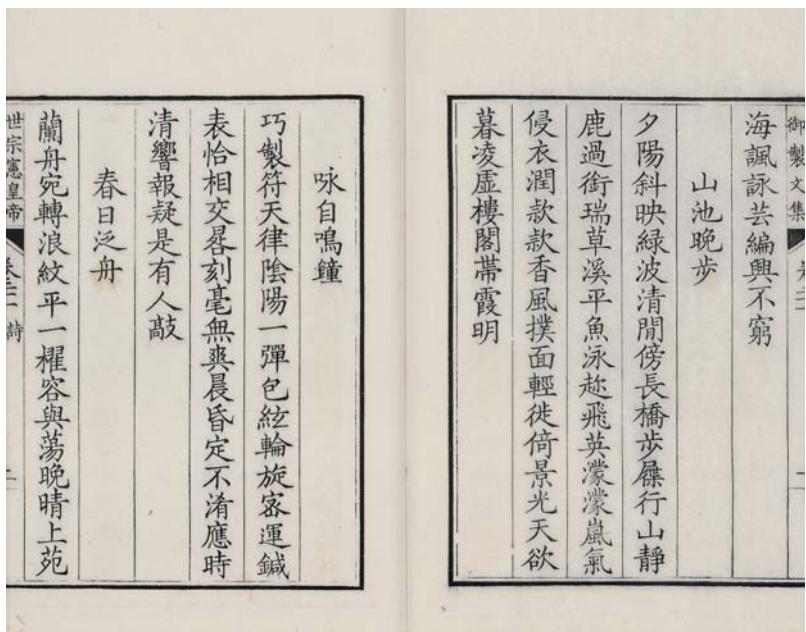 御製文集
海諷詠芸編興不窮
山池晚步
夕陽斜映綠波清閒傍長橋步屧行山靜
鹿過銜瑞草溪平魚泳趂飛英濛濛嵐氣
侵衣潤款款香風撲面輕徙倚景光天欲
暮凌虛樓閣帶霞明
咏自鳴鐘
巧製符天律陰陽一彈包絃輪旋密運鍼
表恰相交晷刻毫無爽晨昏定不淆應時
清響報疑是有人敲
春日泛舟
蘭舟宛轉浪紋平一櫂容與蕩晚晴上苑
世宗憲皇帝
詩